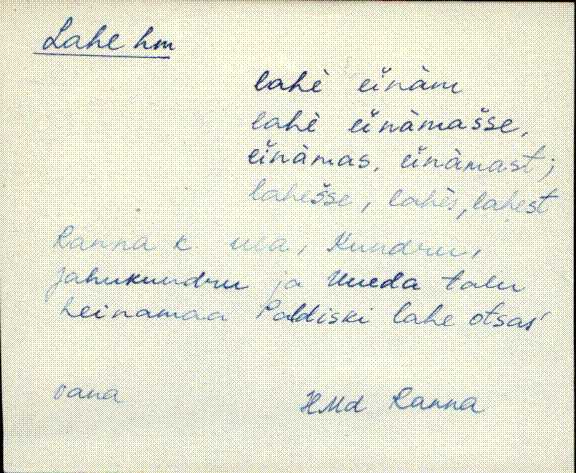 Lahe hm
lahè einàm
lahè einàmašse,
einàmas, einàmast;
lahešse, lahès, lahest
Ranna k Kundru,
Jahukundru ja Uueda talu
heinamaa Paldiski lahe otsas
vana HMd Ranna